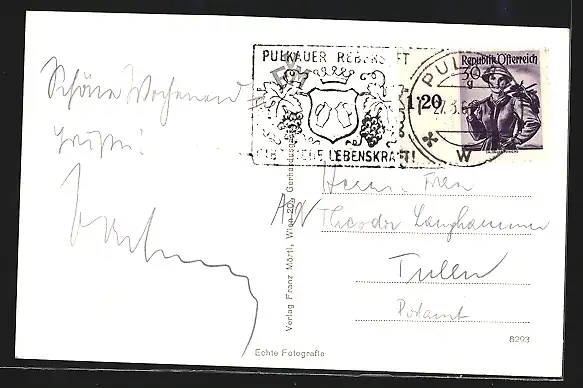 Schöne Wochenend
Grüße!
PULKAUER REBENSAFT
GIBT NEUE LEBENSKRAFT!
PULKAU
W
1†20
Republik Österreich
30
g
Herrn Fran
Theodor Langhammer
Tulln
Postamt
Verlag Franz Mörtl, Wien 20,
Echte Fotografie
8293